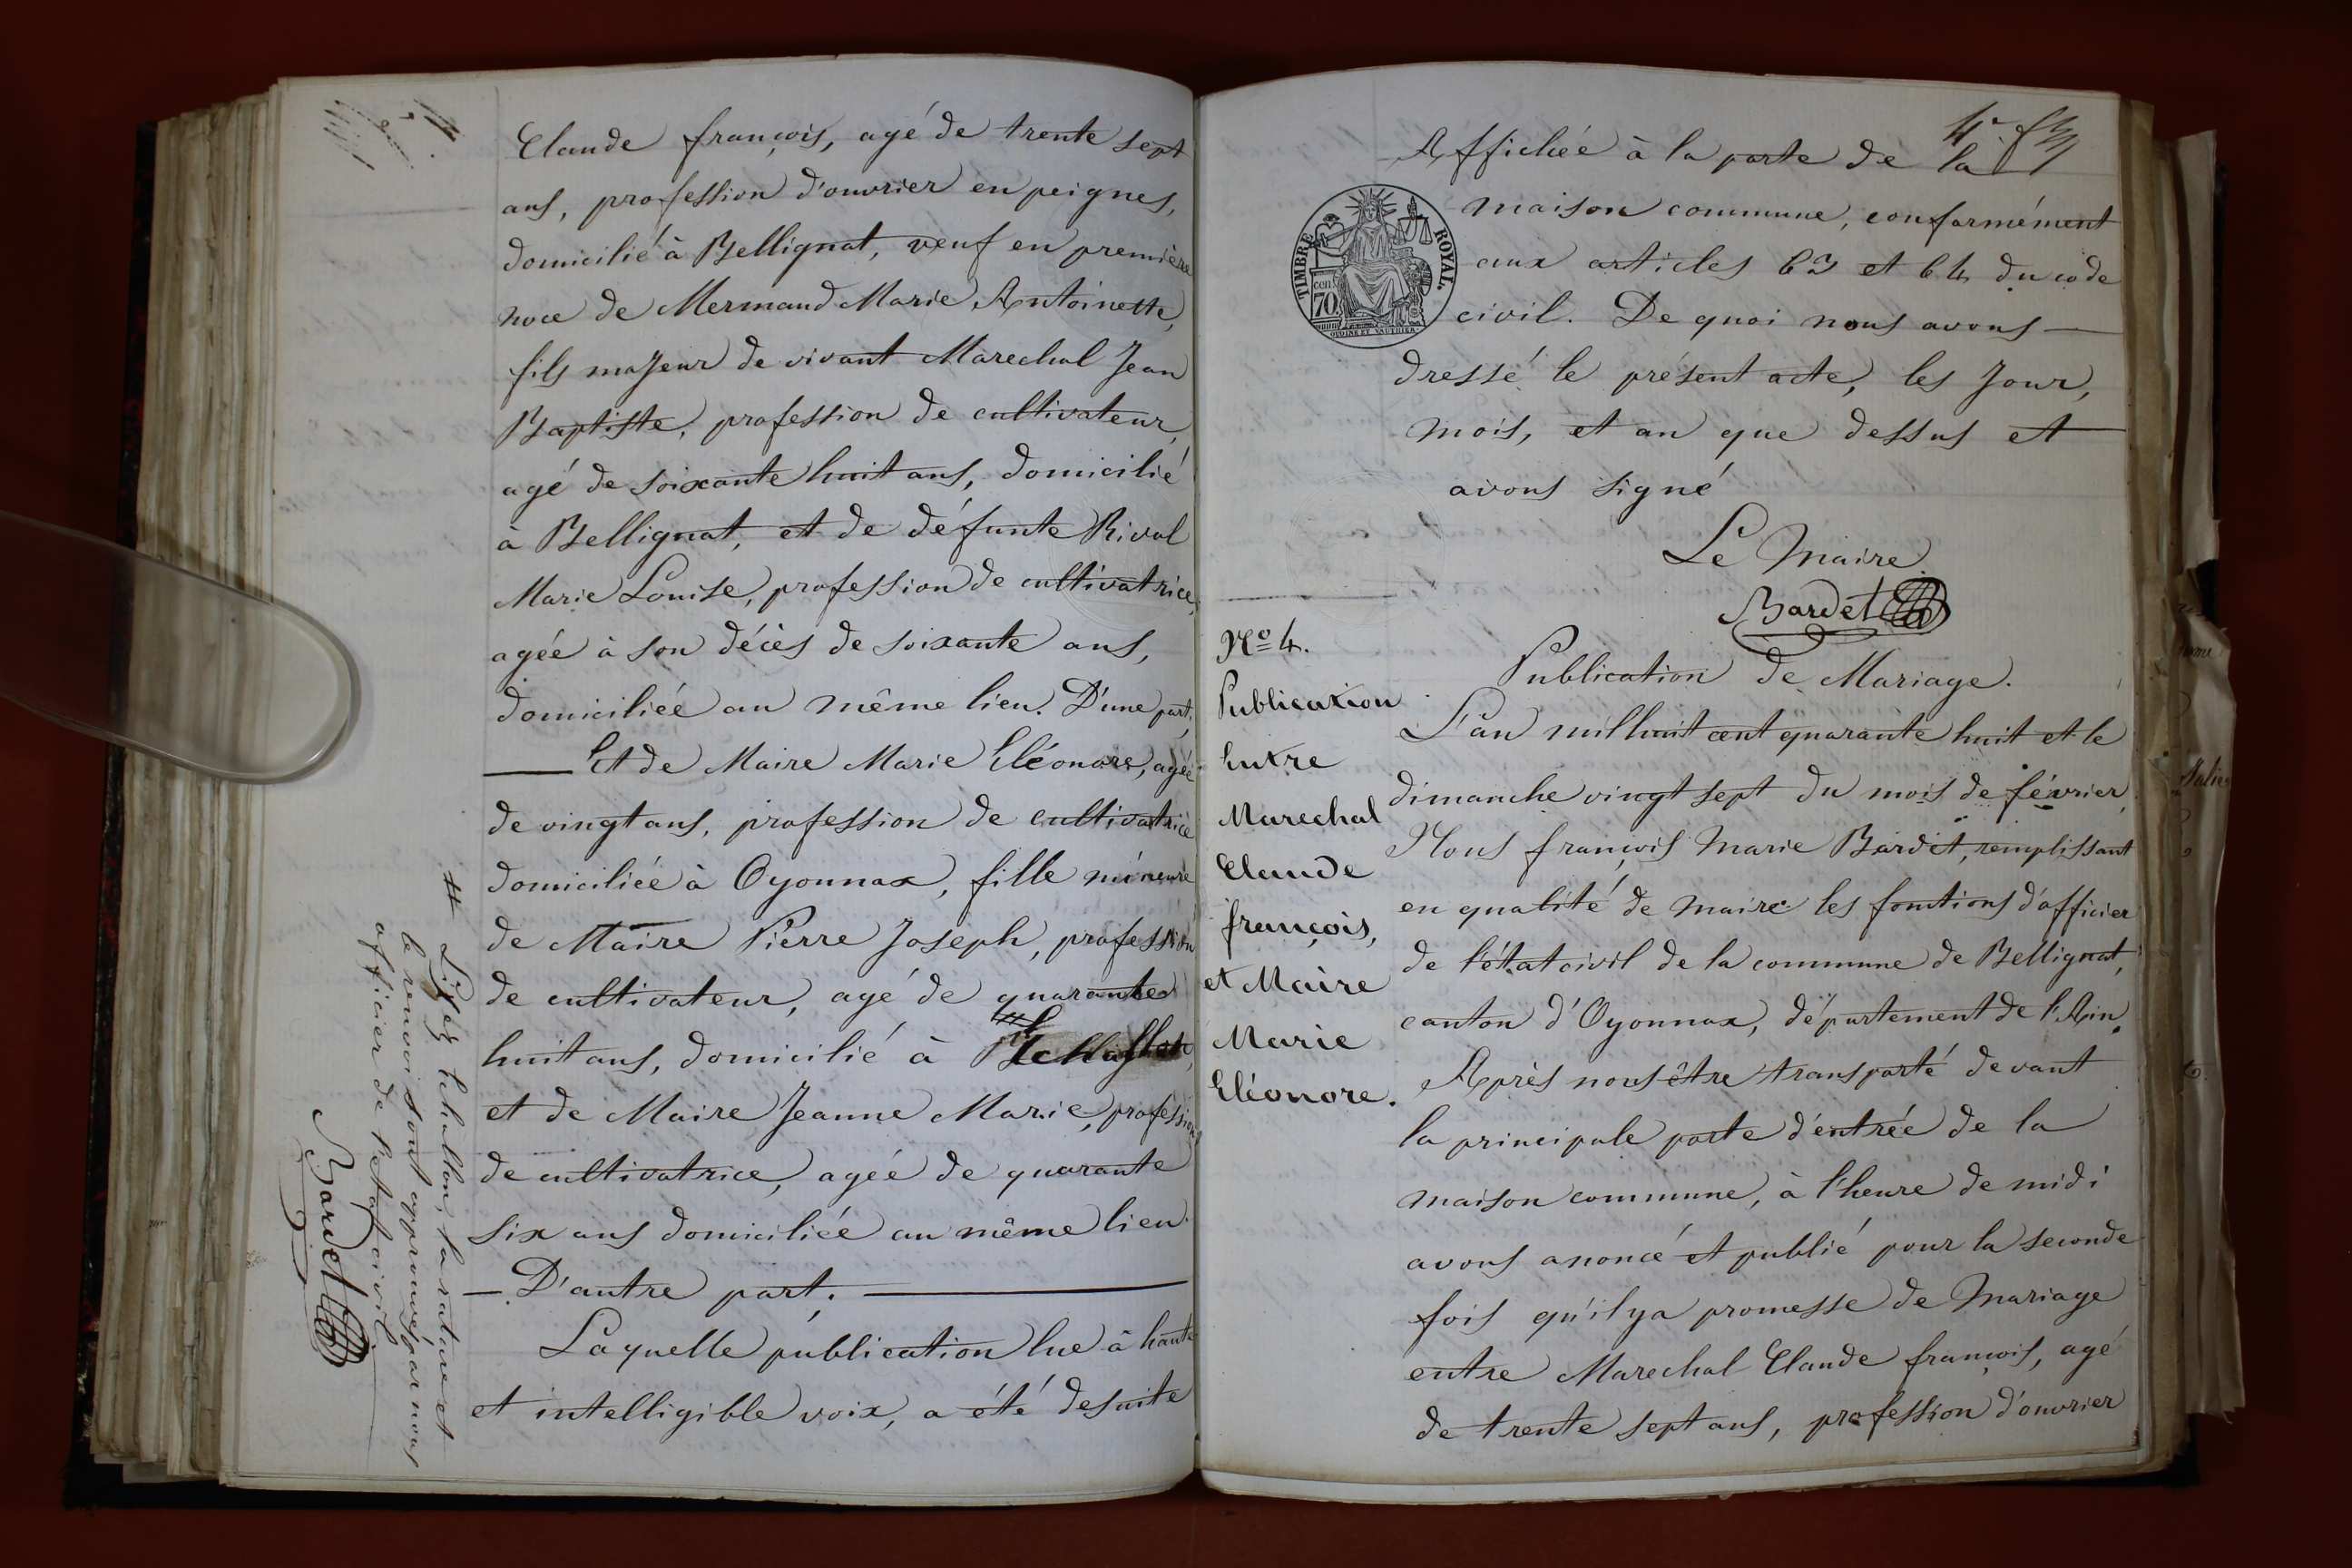 Claude françois, agé de trente sept
ans, profession d'ouvrier en peignes,
domicilié à Bellignat, veuf en première
noce de Mermand Marie Antoinette,
fils majeur de vivant Marechal Jean
Baptiste, profession de cultivateur,
agé de soixante huit ans, domicilié
à Bellignat, et de défunte Rival
Marie Louise, profession de cultivatrice,
agée à son décès de soixante ans,
domiciliée au même lieu. D'une part,
Et de Maire Marie Eléonore, agée
de vingt ans, profession de cultivatrice
domiciliée à Oyonnax, fille mineure
de Maire Pierre Joseph, profession
de cultivateur, agé de quarante
huit ans, domicilié à
et de Maire Jeanne Marie, profession
de cultivatrice, agée de quarante
six ans domiciliée au même lieu
D'autre part.
Laquelle publication lue à haute
et intelligible voix, a été desuite
# Lisez Echallon, la rature et
le renvoi sont approuvés par nous
officier de l'etat civil
Bardet
4e. f
Affichée à la porte de la
maison commune, conformément
aux articles 63 et 64 du code
civil. De quoi nous avons
dressé le présent acte, les Jour,
mois, et an que dessus et
avons signé
Le Maire
Bardet
TIMBRE ROYAL.
70 cent
No 4.
Publication
Entre
Marechal
Claude
françois,
et Maire
Marie
Eléonore.
Publication de Mariage.
L'an mil huit cent quarante huit et le
dimanche vingt sept du mois de février,
Nous françois Marie Bardet, remplissant
en qualité de maire les fontions d'officier
de l'état civil de la commune de Bellignat,
canton d'Oyonnax, département de l'Ain,
Après nous être transporté devant
la principale porte d'entrée de la
maison commune, à l'heure de midi
avons anoncé et publié pour la seconde
fois qu'il y a promesse de Mariage
entre Marechal Claude françois, agé
de trente sept ans, profession d'ouvrier